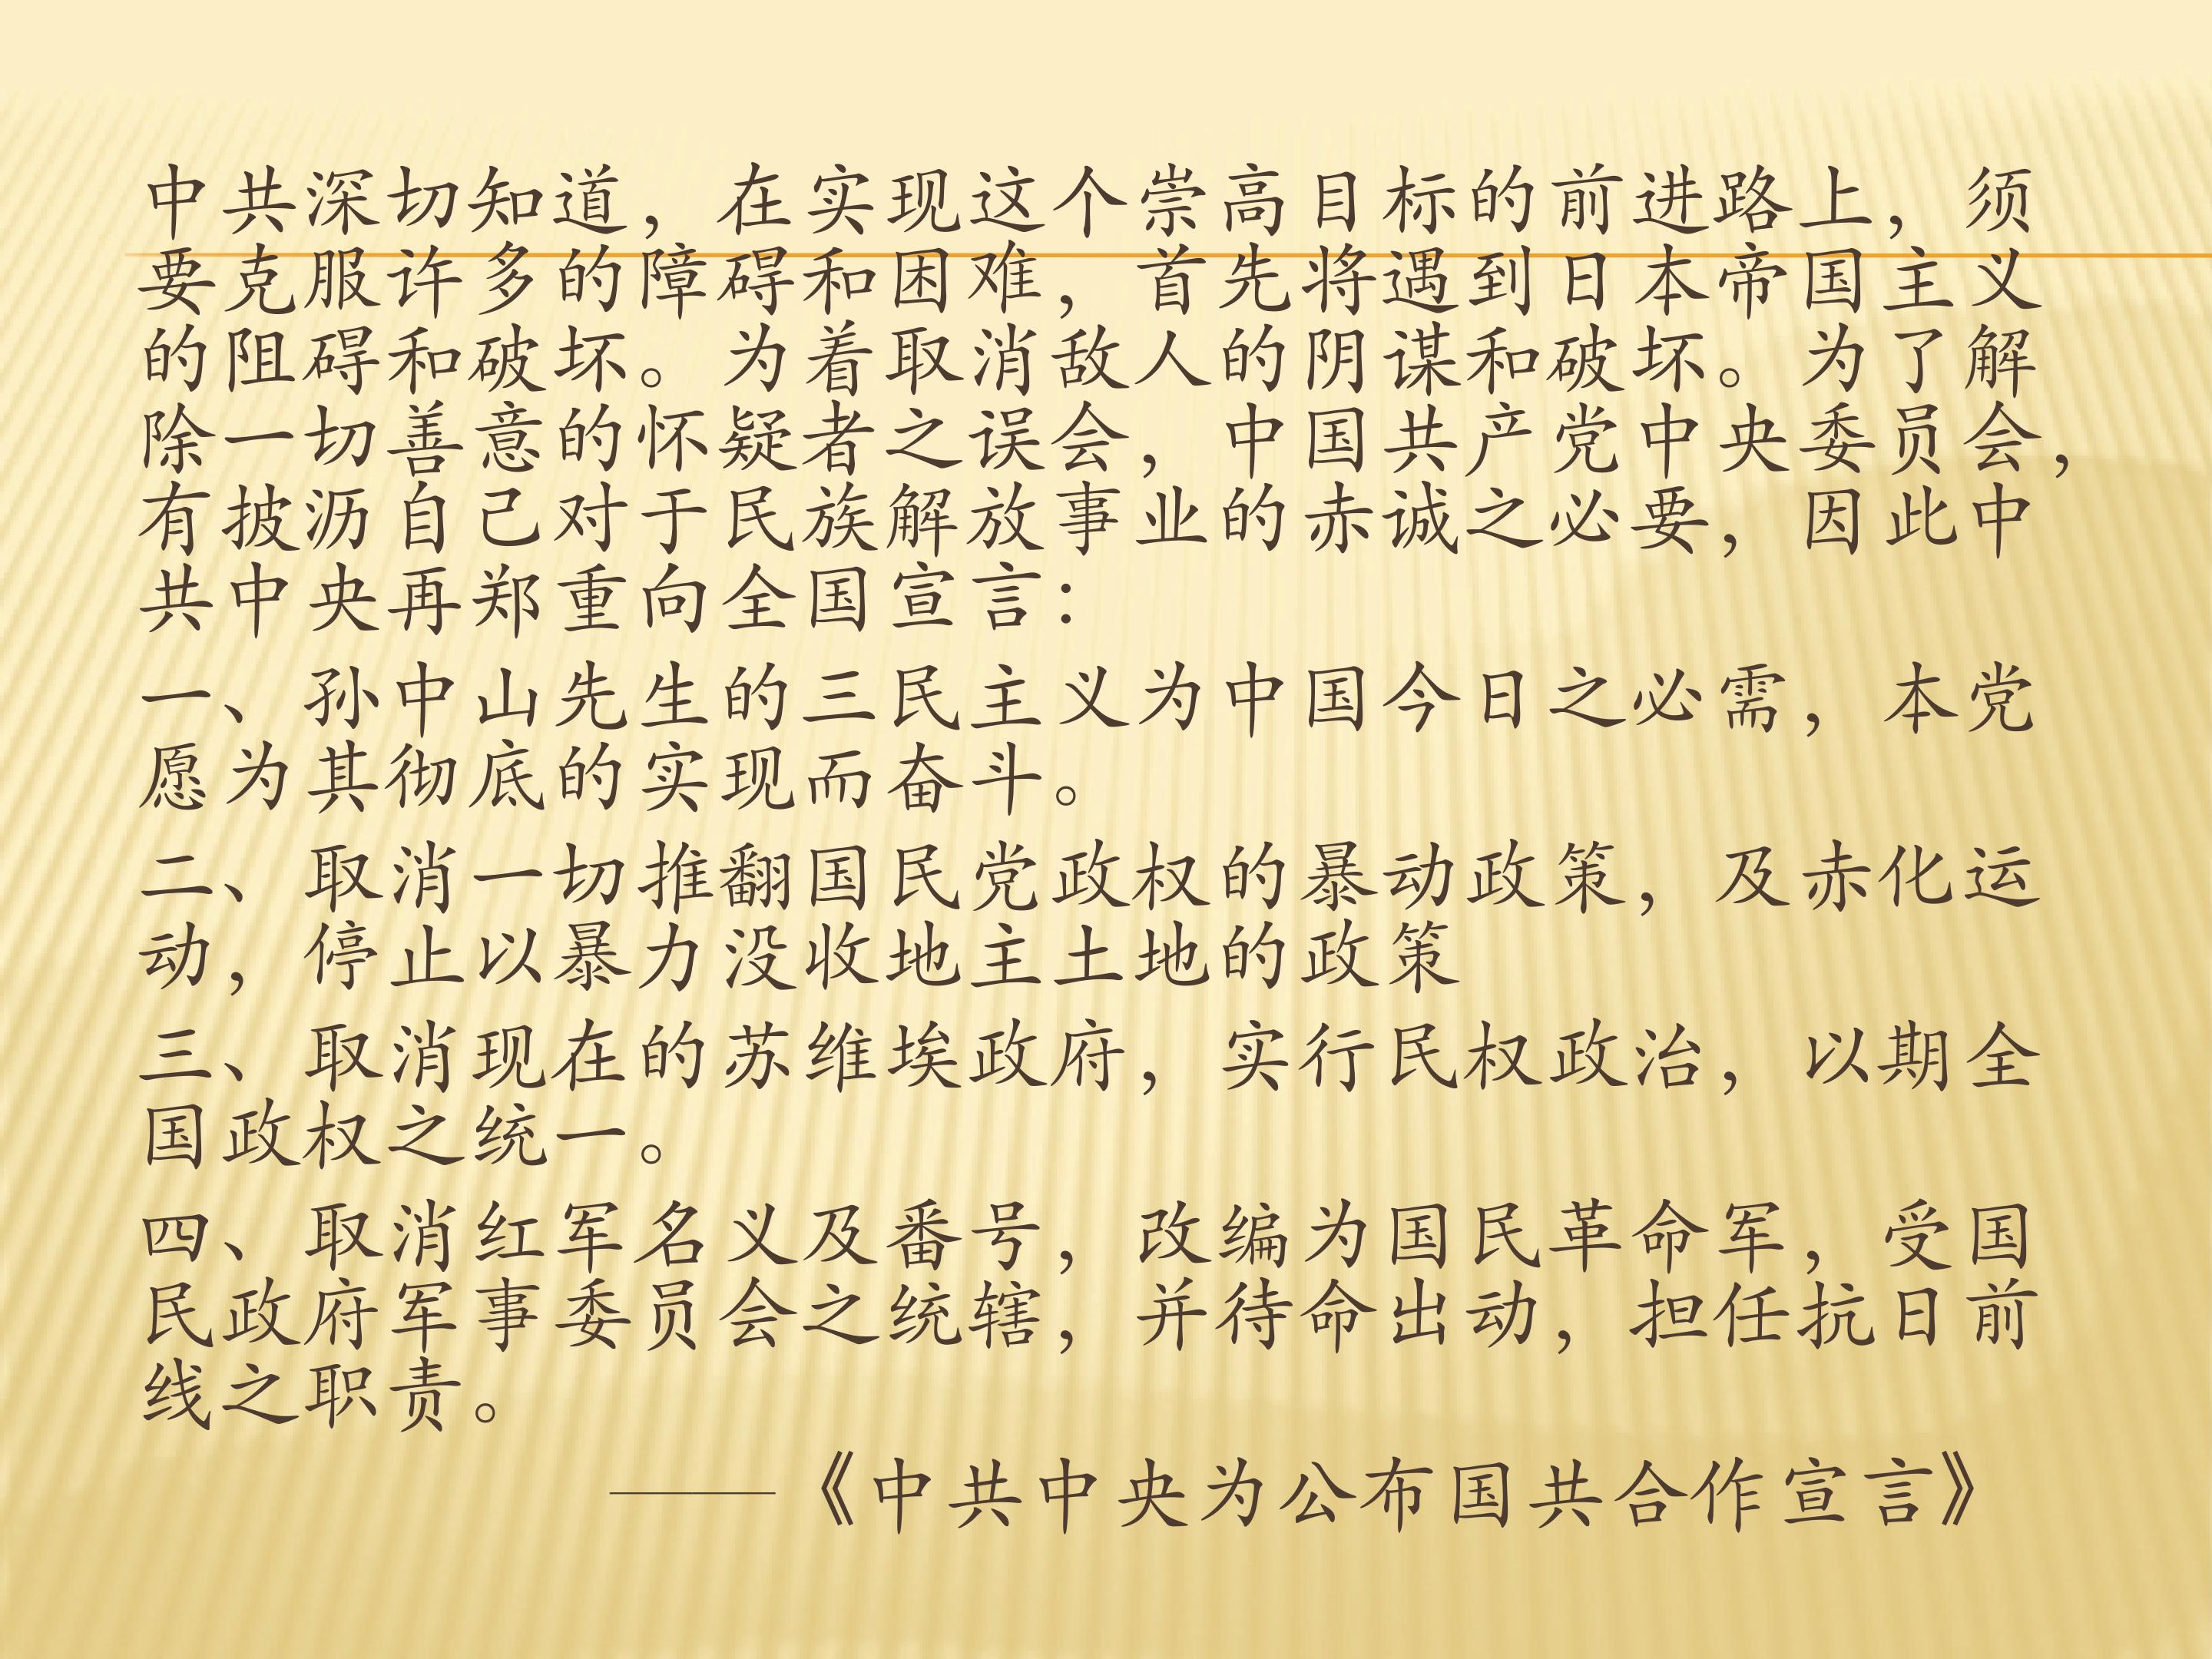 中共深切知道，在实现这个崇高目标的前进路上，须
要克服许多的障碍和困难，首先将遇到日本帝国主义
的阻碍和破坏。为着取消敌人的阴谋和破坏。为了解
除一切善意的怀疑者之误会，中国共产党中央委员会，
有披沥自己对于民族解放事业的赤诚之必要，因此中
共中央再郑重向全国宣言：
一、孙中山先生的三民主义为中国今日之必需，本党
愿为其彻底的实现而奋斗。
二、取消一切推翻国民党政权的暴动政策，及赤化运
动，停止以暴力没收地主土地的政策
三、取消现在的苏维埃政府，实行民权政治，以期全
国政权之统一。
四、取消红军名义及番号，改编为国民革命军，受国
民政府军事委员会之统辖，并待命出动，担任抗日前
线之职责。
——《中共中央为公布国共合作宣言》